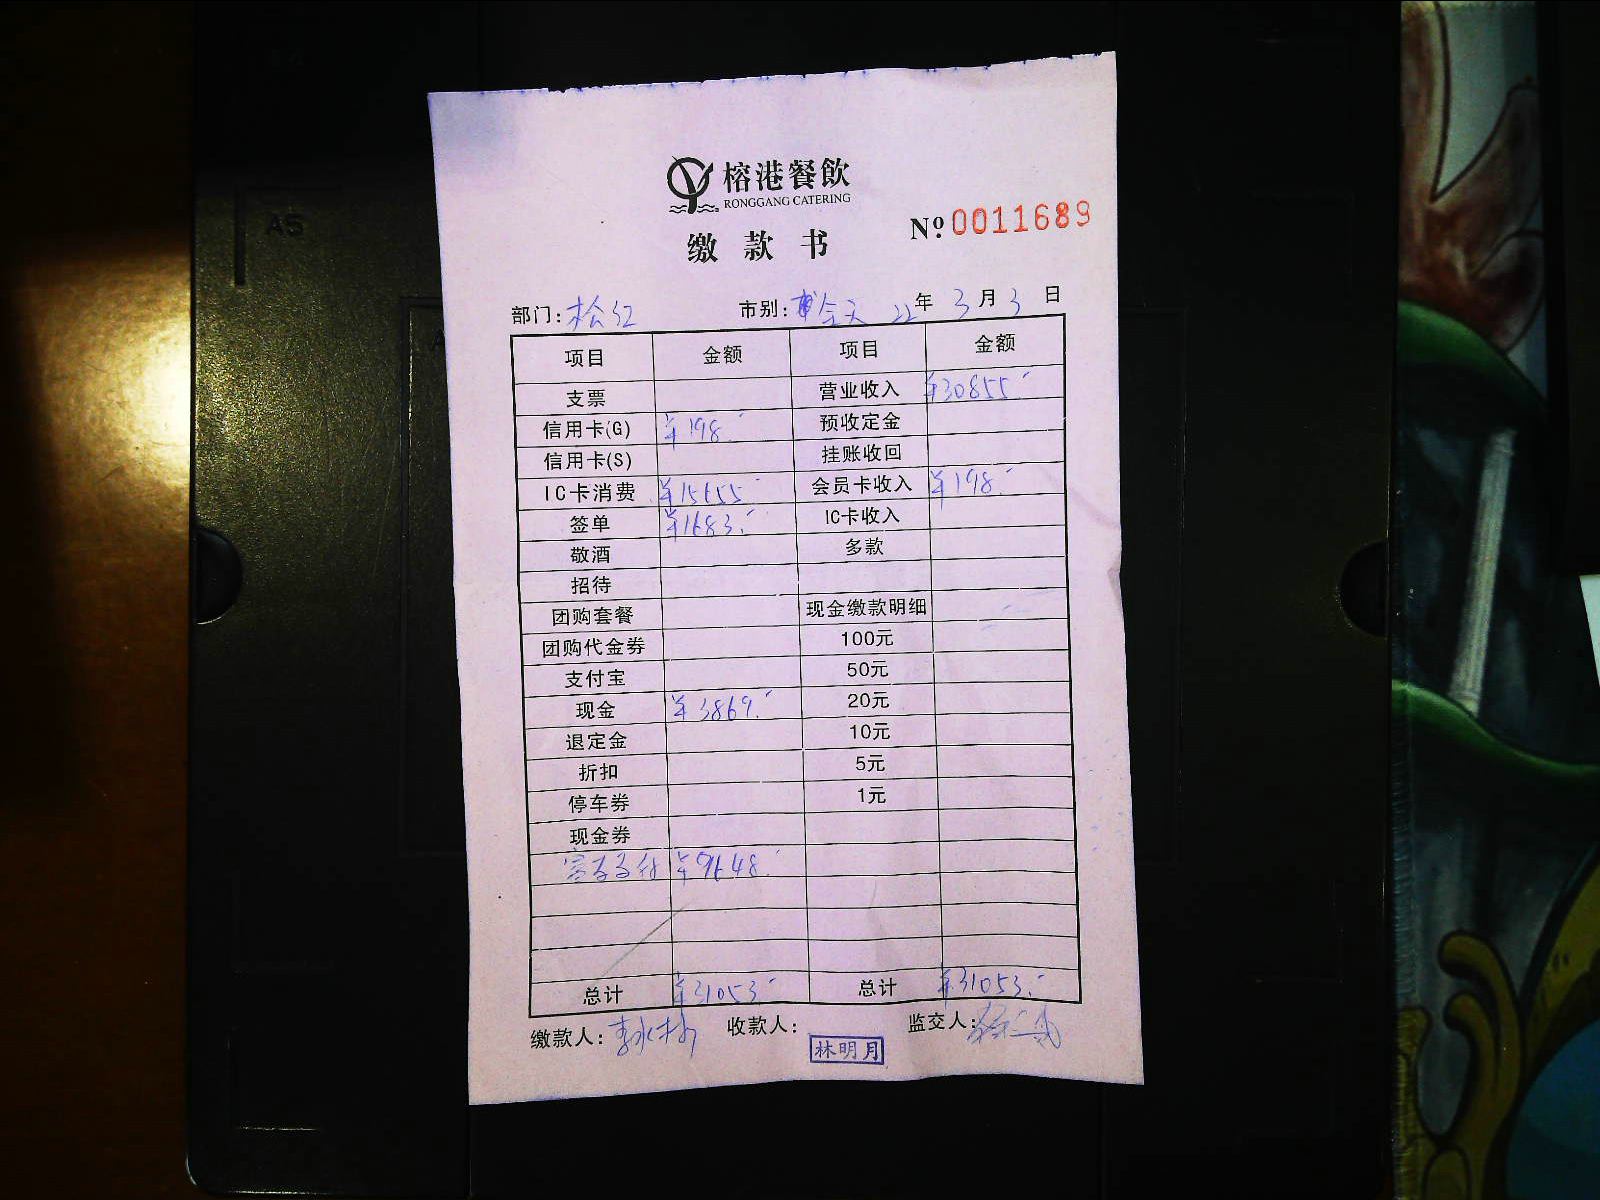 A5
榕港餐飲
RONGGANG CATERING
缴款书 №0011689
部门:松红 市别:全天 22年3月3日
项目 金额 项目 金额
支票 营业收入 ¥30855.-
信用卡(G) ¥198.- 预收定金
信用卡(S) 挂账收回
IC卡消费 ¥15655.- 会员卡收入 ¥198.-
签单 ¥1683.- IC卡收入
敬酒 多款
招待
团购套餐 现金缴款明细
团购代金券 100元
支付宝 50元
现金 ¥3869.- 20元
退定金 10元
折扣 5元
停车券 1元
现金券
支付 ¥9648.-
总计 ¥31053.- 总计 ¥31053.-
缴款人: 收款人: 林明月 监交人: